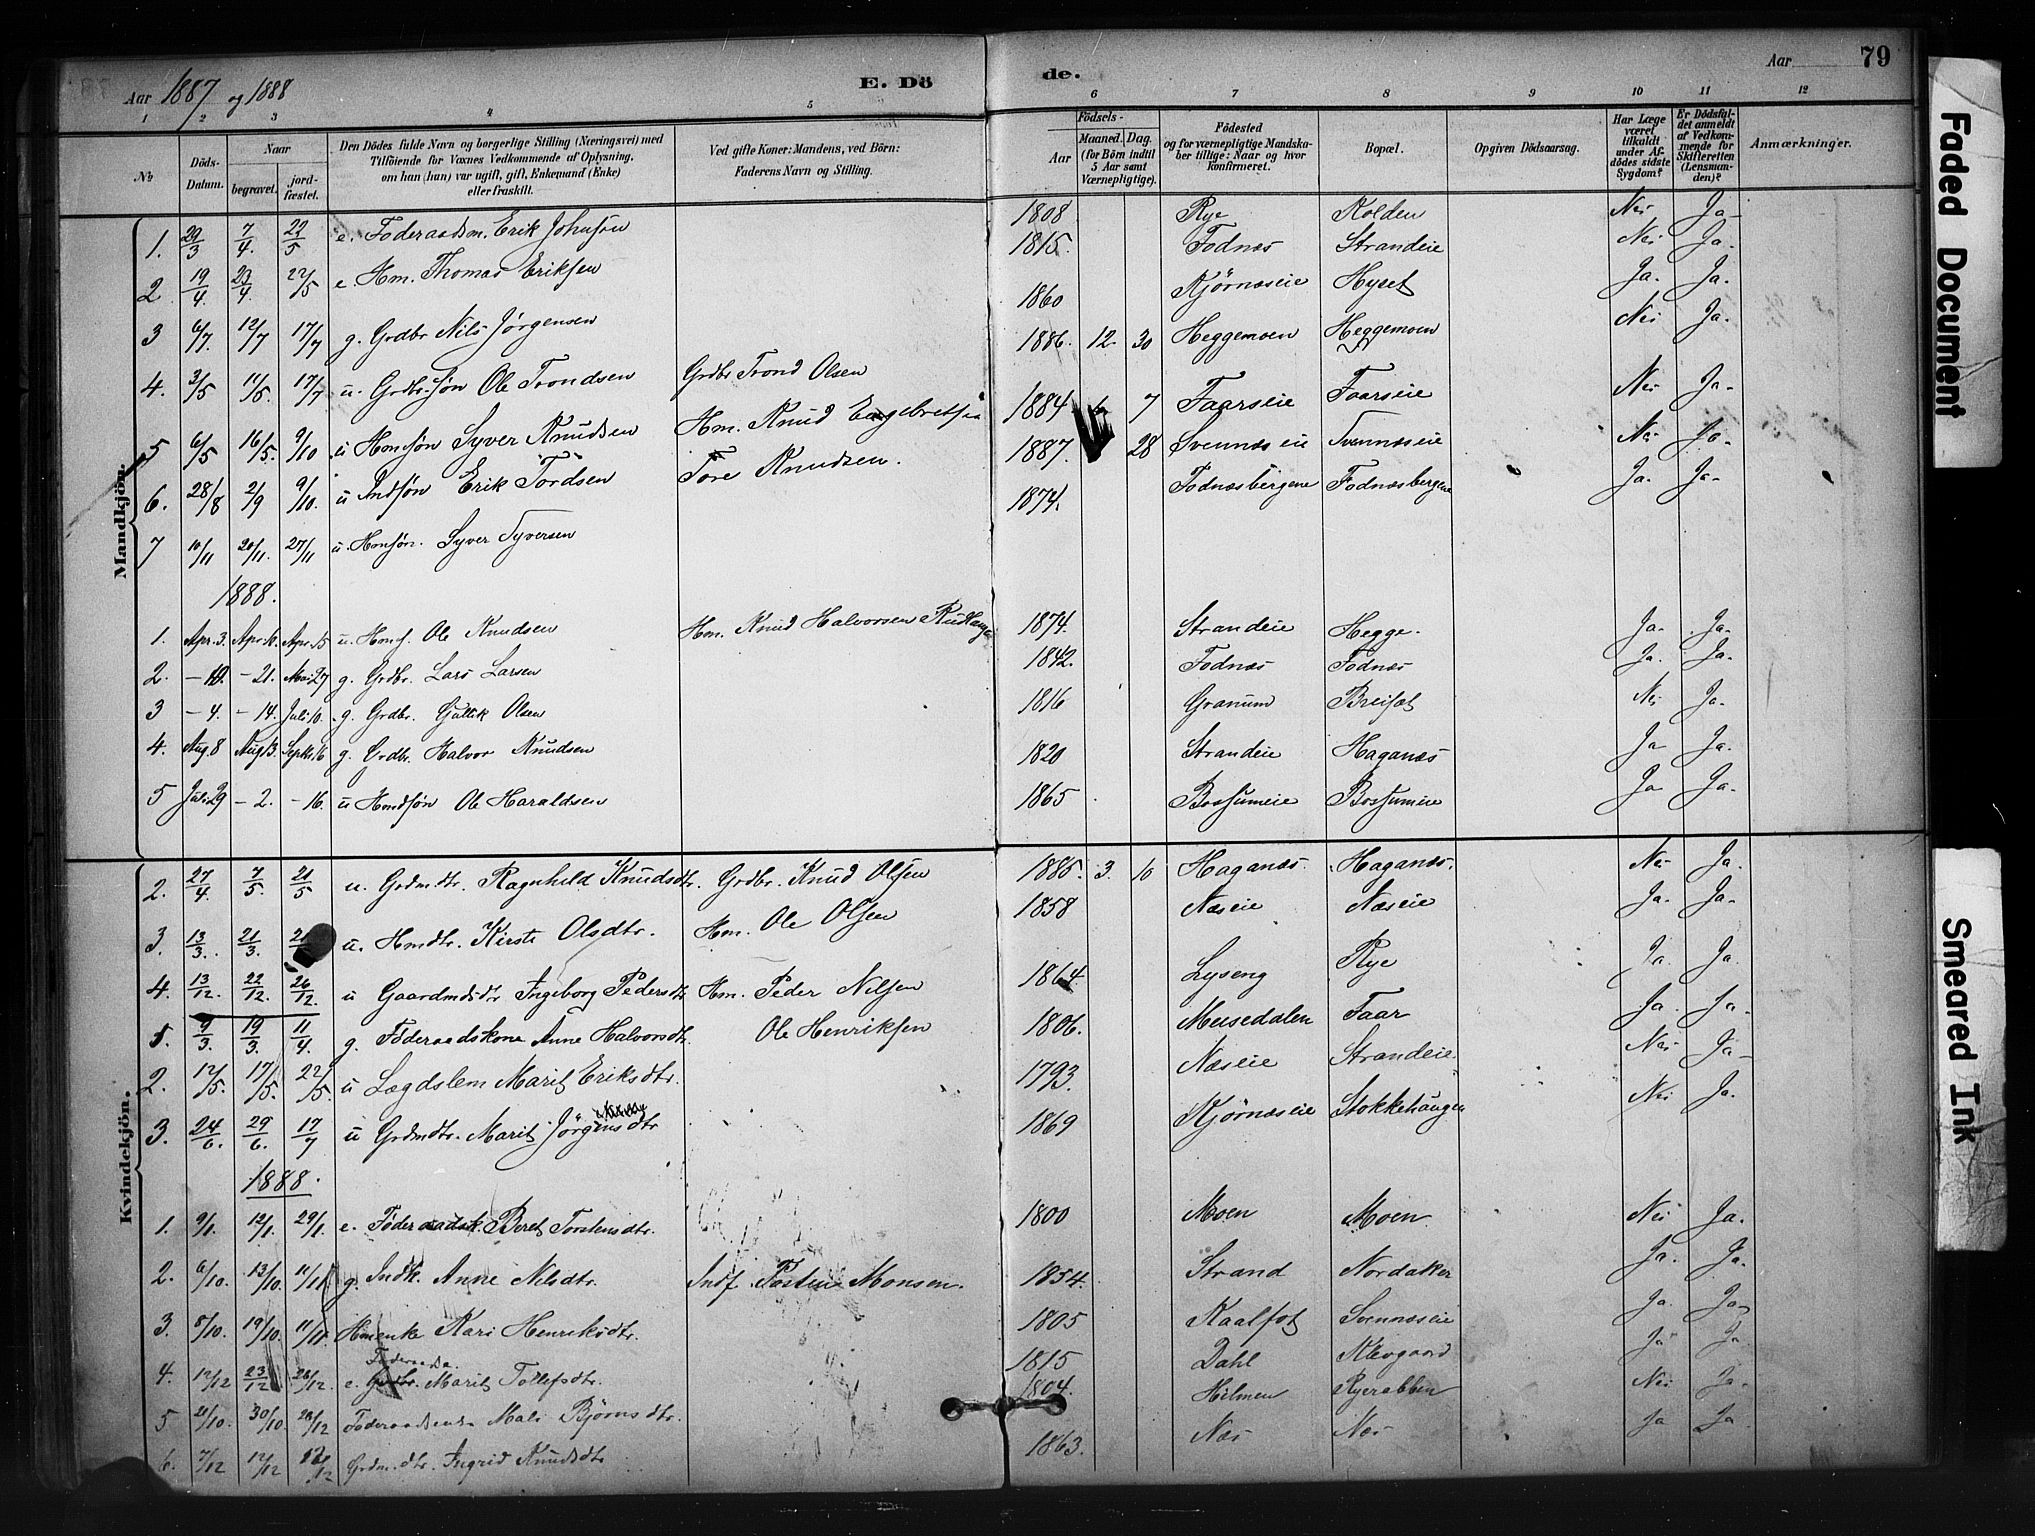 Aar 1887 og 1888
E. Dö
de.
Aar
79
1 2 3 4 5 6 7 8 9 10 11 12
No
Döds-Datum.
Naar
begravet.
jord-fæstet.
Den Dödes fulde Navn og borgerlige Stilling (Næringsvei) med
Tilföiende for Voxnes Vedkommende af Oplysning,
om han (hun) var ugift, gift, Enkemand (Enke)
eller fraskilt.
Ved gifte Koner: Mandens, ved Börn:
Faderens Navn og Stilling.
Födsels-
Aar
Maaned. Dag.
(for Börn indtil
5 Aar samt
Værnepligtige).
Födested
og for værnepligtige Mandska-
ber tillige: Naar og hvor
konfirmeret.
Bopæl.
Opgiven Dödsaarsag.
Har Læge
været
tilkaldt
under Af-
dödes sidste
Sygdom?
Er Dödsfal-
det anmeldt
af Vedkom-
mende for
Skifteretten
(Lensman-
den)?
Anmærkninger.
Mandkjön.
1. 29/3 7/4 22/5 e. Föderaadsm. Erik Johnsön 1808 Rye Kolden Nei Ja
2 19/4 23/4 22/5 e. Hm. Thomas Eriksen 1815. Fodnæs Strandeie Nei Ja.
3 6/7 12/7 17/7 g. Grdbr Nils Jörgensen 1860 Kjörnæseie Hyset Ja. Ja.
4. 3/5 11/5 17/7 u. Grdbr.sön Ole Trondsen Grdbr Trond Olsen 1886. 12. 30 Heggemoen Heggemoen Nei Ja.
5 6/5 16/5. 9/10 u Hmsön Syver Knudsen Hm. Knud Engebretsen 1884 7 Faarseie Faarseie Nei Ja.
6. 28/8 2/9 9/10. u Indsön Erik Tordsen Tore Knudsen. 1887. 28 Svennæseie Svennæseie Nei Ja.
7 10/11 20/11. 27/11 u. Hmsön. Syver Syversen 1874. Fodnæsbergene Fodnæsbergene Ja. Ja.
1888.
1. Apr. 3. Apr. Apr. 15 u. Hms. Ole Knudsen Hm. Knud Halvorsen 1874. Strandeie Hegge. Ja. Ja.
2. - - 21. Mai 27 g. Grdbr. Lars Larsen 1842. Fodnæs Fodnæs Ja. Ja.
3 - 4. - 14. Juli 10. g. Grdbr. Gullik Olsen 1816 Granum Breiset Nei Ja.
4. Aug. 8 Aug. 13. Septr. 16 g. Grdbr. Halvor Knudsen 1820 Strandeie Haganæs Ja Ja.
5 Juli 29 - 2. - 16. u Hmdsön Ole Haraldsen 1865 Bossumeie Bossumeie Ja Ja.
Kvindekjön.
2. 27/4 7/5. 21/5 u. Grdmdtr. Ragnhild Knudsdtr. Grdbr. Knud Olsen 1885. 3. 10 Haganæs. Haganæs. Nei Ja.
3. 13/3. 21/3. u. Hmdtr. Kirsti Olsdtr. Hm. Ole Olsen 1858 Næseie Næseie Ja. Ja.
4. 13/12. 22/12. 26/12. u Gaardmdsdtr Ingeborg Pedersdtr Hm. Peder Nilsen 1864. Lyseng Rye Ja. Ja.
1. 9/3 19/3. 11/4 g. Föderaadskone Anne Halvorsdtr. Ole Henriksen 1806. Meisedalen Faar Ja. Ja.
2. 12/5. 17/5. 22/5. u Lægdslem Marit Eriksdtr. 1793. Næseie Strandeie. Nei Ja
3. 24/6. 29/6. 17/7 u Grdmdtr. Marit Jörgensdtr 1869 Kjörnæseie Stokkehaugen Nei Ja.
1888.
1. 9/1. 12/1. 29/1. e. Föderaadsk. Beret Torstensdtr. 1800 Moen Moen. Nei Ja.
2. 6/10. 13/10. 11/11 g. Indk. Anne Nilsdtr. Inds. Tosten Monsen. 1854. Strand Nordaker Ja. Ja.
3. 8/10. 19/10. 11/11. Hmenke Kari Henriksdtr. 1805 Kaalfot Svennæseie Ja. Ja
4. 12/12 23/12 26/12. e. Föderaads. Marit Tollefsdtr. 1815 Dahl Klevgaard Ja Ja
5 21/10. 30/10. 26/12 Föderaadsenke Mali Björnsdtr. 1804. Hilmen Ryerabben Nei Ja.
6. 7/12 12/12 /12 Grdm.dtr. Ingrid Knudsdtr 1863. Næs Næs Ja Ja
Faded Document
Smeared Ink